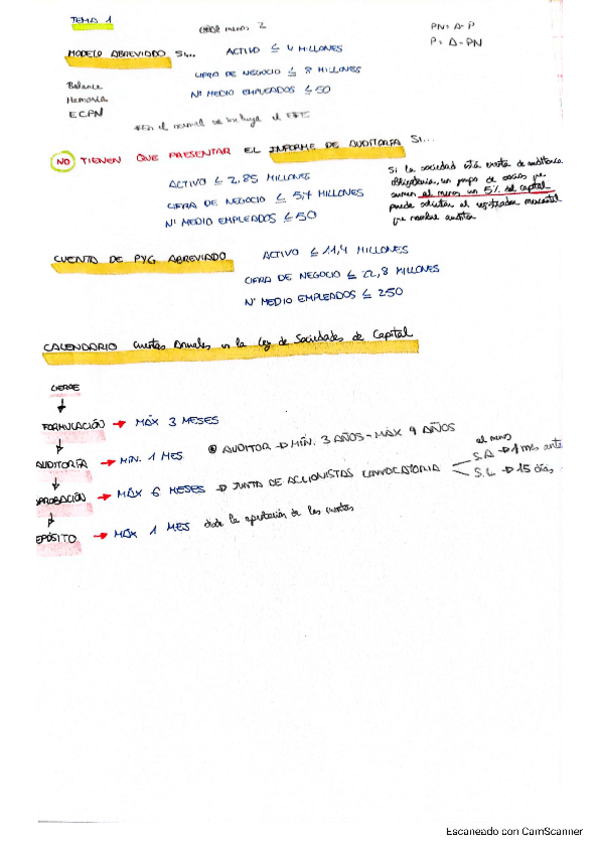 TEMA 1
menos 2
PN = A - P
P = A - PN
MODELO ABREVIADO SI...
ACTIVO ≤ 4 MILLONES
CIFRA DE NEGOCIO ≤ 8 MILLONES
Nº MEDIO EMPLEADOS ≤ 50
Balance
Memoria
ECPN
*En el normal se incluye el EFE
NO TIENEN QUE PRESENTAR EL INFORME DE AUDITORÍA SI...
ACTIVO ≤ 2,85 MILLONES
CIFRA DE NEGOCIO ≤ 5,7 MILLONES
Nº MEDIO EMPLEADOS ≤ 50
Si la sociedad está exenta de auditoría
obligatoria, un grupo de socios que
sumen al menos un 5% del capital
puede solicitar al registrador mercantil
que nombre auditor
CUENTA DE PYG ABREVIADO
ACTIVO ≤ 11,4 MILLONES
CIFRA DE NEGOCIO ≤ 22,8 MILLONES
Nº MEDIO EMPLEADOS ≤ 250
CALENDARIO Cuentas Anuales en la Ley de Sociedades de Capital
CIERRE
FORMULACIÓN → MÁX 3 MESES
AUDITORÍA → MÍN. 1 MES
AUDITOR → MÍN. 3 AÑOS - MÁX 9 AÑOS
PROBACIÓN → MÁX 6 MESES → JUNTA DE ACCIONISTAS CONVOCATORIA
al menos
S.A → 1 mes ante
S.L → 15 días,
EPÓSITO → MÁX 1 MES desde la aprobación de las cuentas
Escaneado con CamScanner